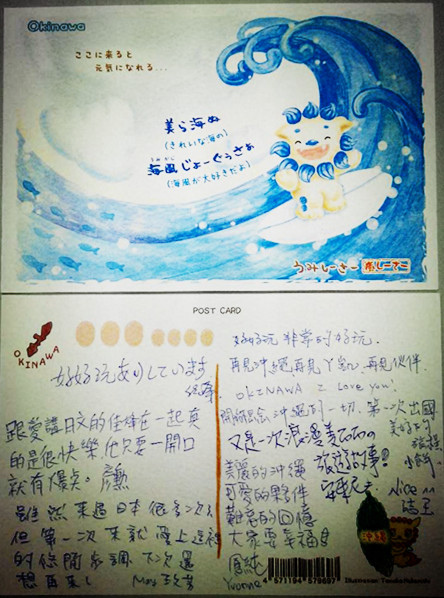 Okinawa
ここに来ると
元気になれる...
美ら海ぬ
(きれいな海の)
海風じょーぐぅさぁ
うみかじ
(海風が大好きだよ)
うみしーさー
POST CARD
OKINAWA
好好玩ありしています
跟愛講日文的佳倖在一起真
的是很快樂,他只要一開口
就有爆點。
雖然來過日本很多次了
但第一次來就愛上這裡
的悠閒步調 下次還
想再來!
May
好好玩 非常的好玩.
再見沖繩再見ㄚ ,再見伙伴.
OKINAWA I Love you!
沖繩的一切.第一次出國
又是一次浪漫美
美好的
旅程
旅遊故事!
美麗的沖繩
可愛的夥伴
難忘的回憶
大家要幸福!
Nice ^^
Yvonne
4 571194 579697
Illustration